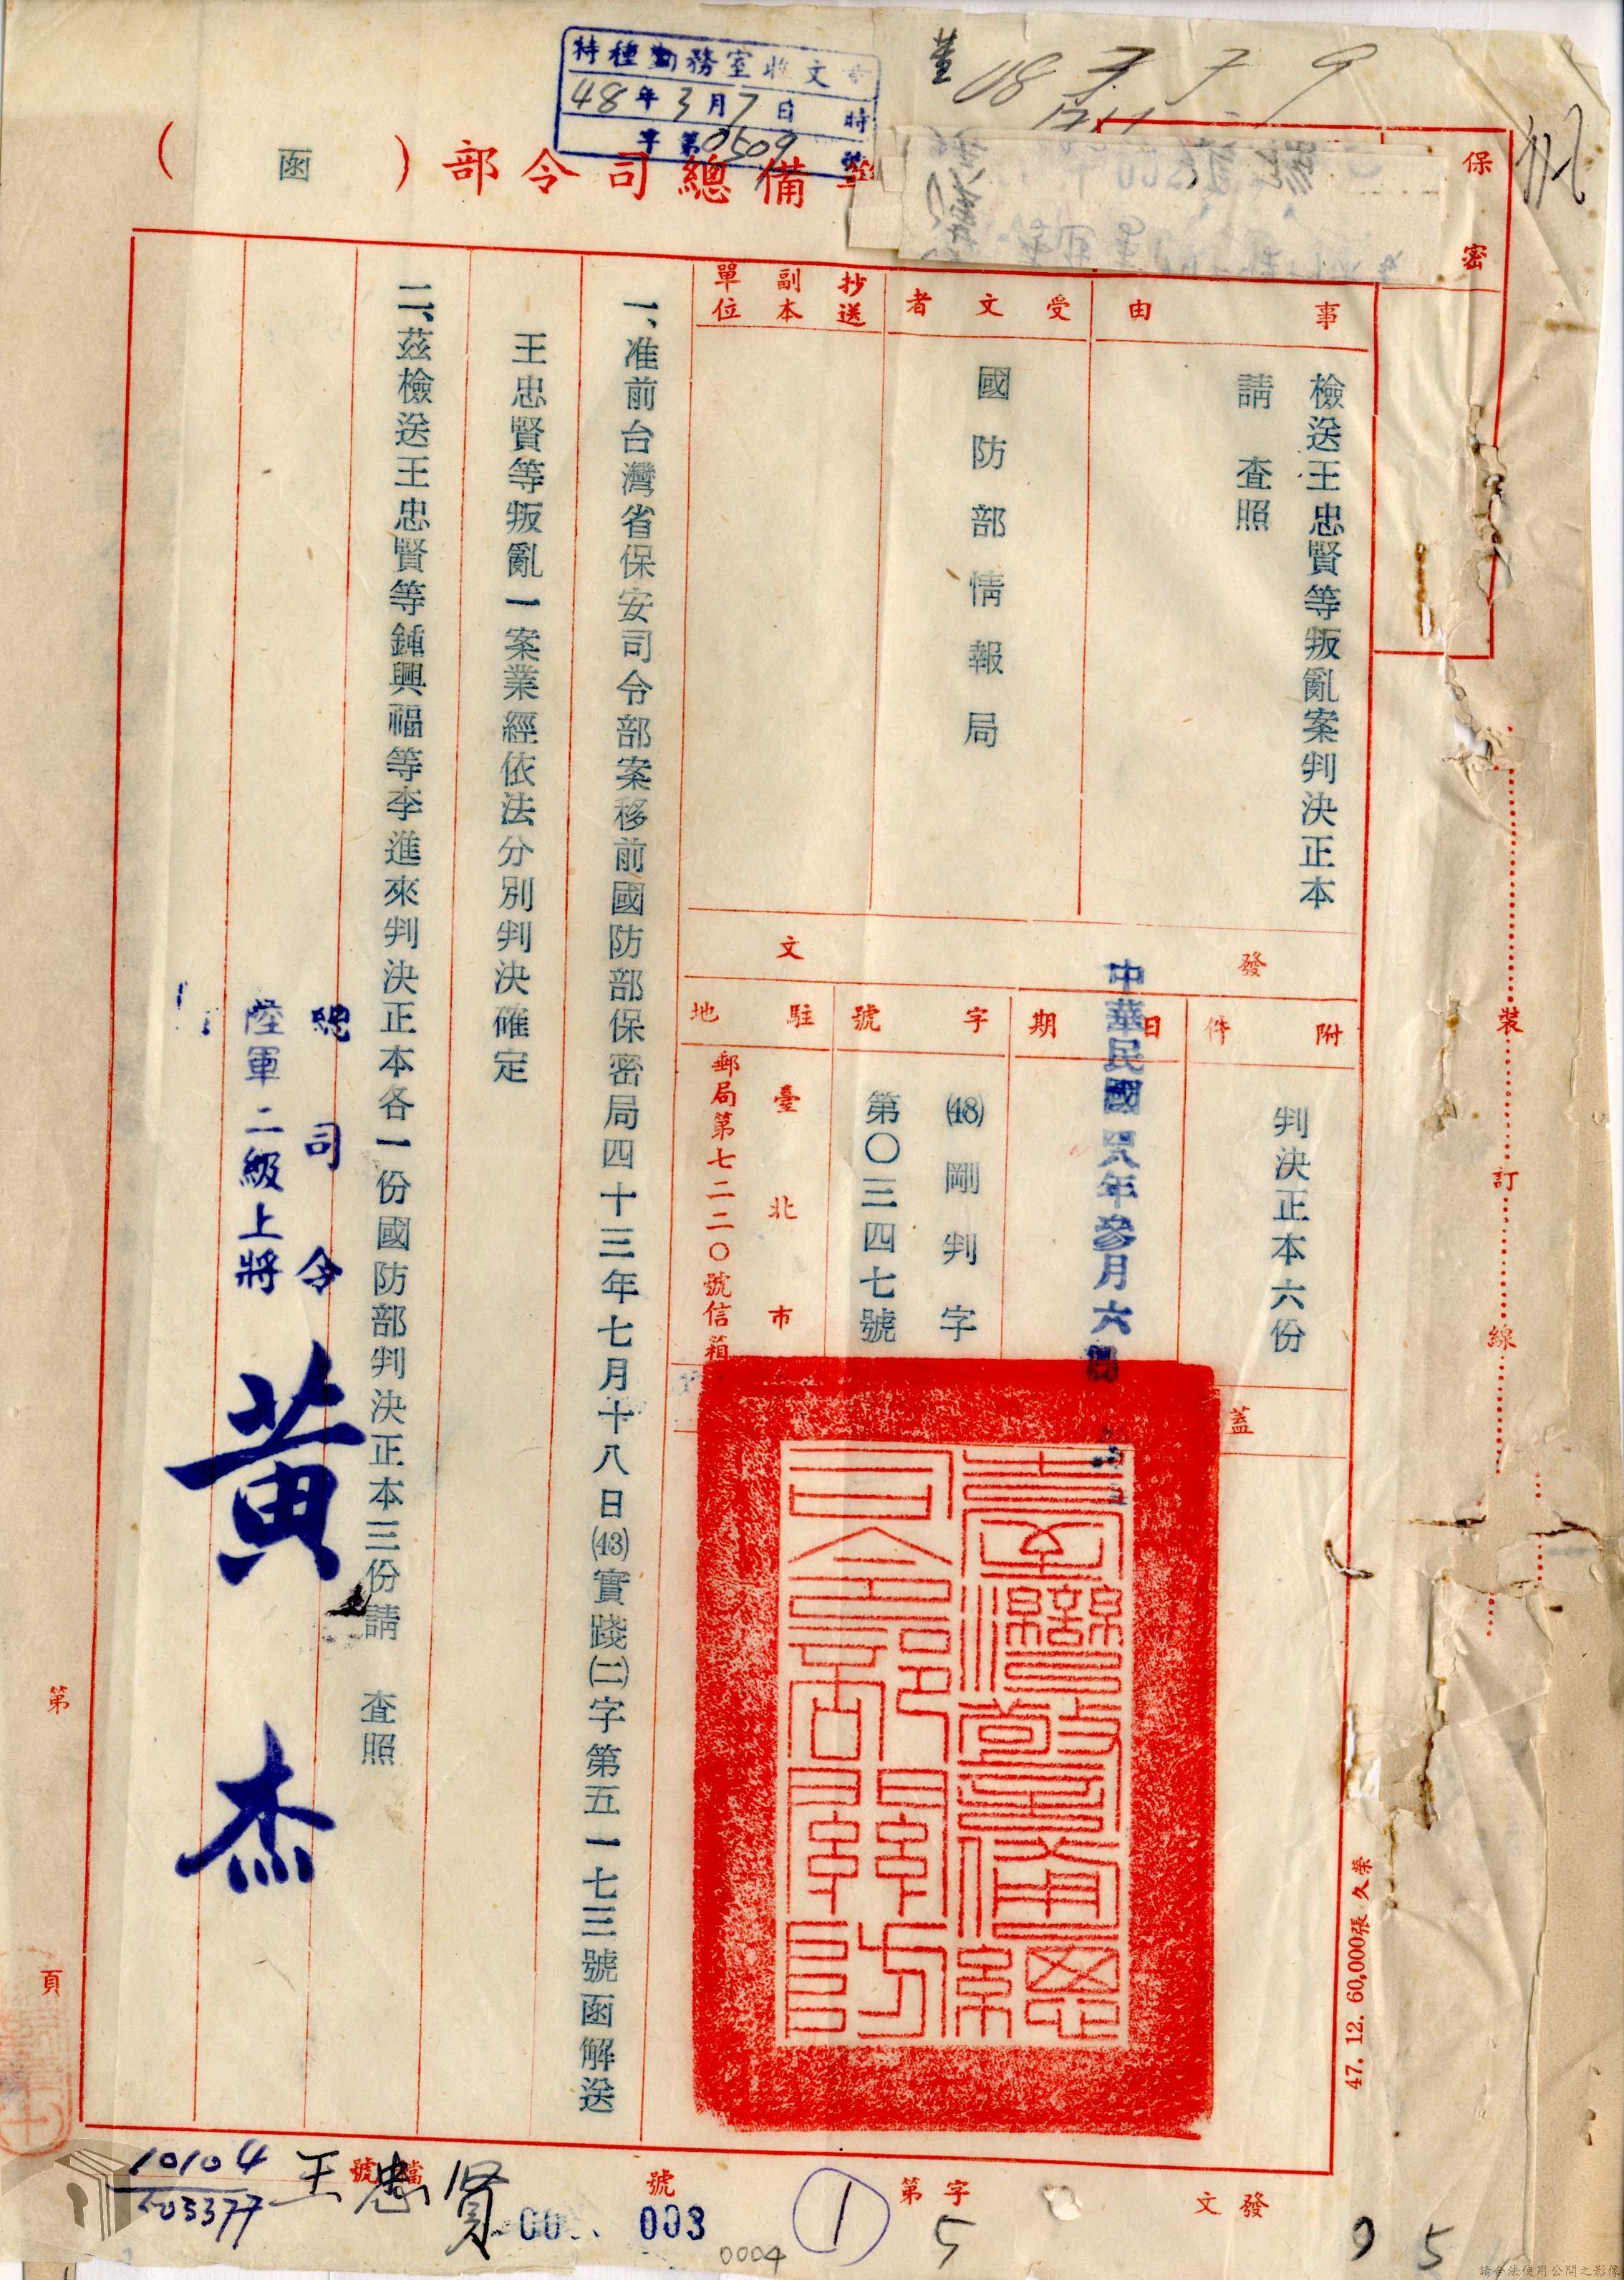 特種勤務室收文
48年3月7日 時
字第0509號
備總司令部(函)
保密
事由
檢送王忠賢等叛亂案判決正本
請 查照
受文者
國防部情報局
抄送副本單位
發文
附件
判決正本六份
日期
中華民國四八年參月六日
字號
(48)剛判字
第〇三四七號
駐地
臺北市
郵局第七二二〇號信箱
蓋
臺灣警備總司令部關防
一、准前台灣省保安司令部案移前國防部保密局四十三年七月十八日(43)實踐(二)字第五一七三號函解送
王忠賢等叛亂一案業經依法分別判決確定
二、茲檢送王忠賢等鍾興福等李進來判決正本各一份國防部判決正本三份請 查照
總司令
陸軍二級上將 黃杰
裝訂線
47. 12. 60,000張 久榮
第 頁
發文
字第
號
檔號
5
1
003
0004
王忠賢
10104
95
請合法使用公開之影像